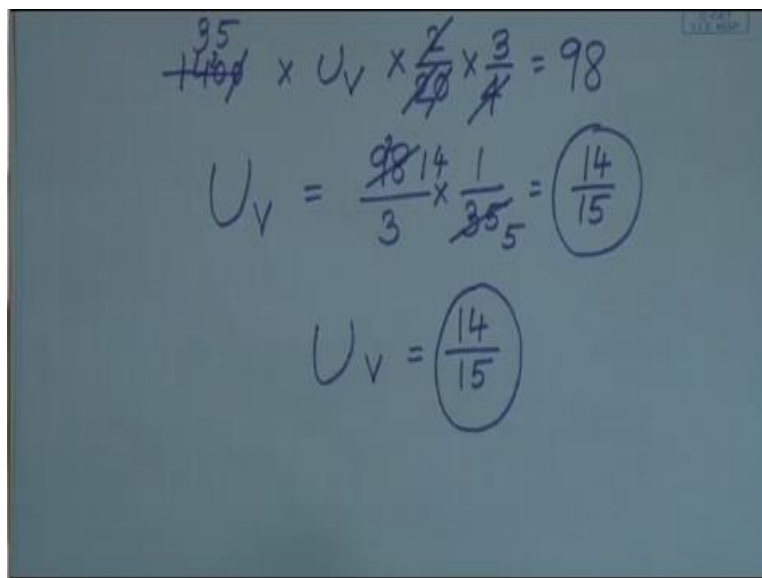 35
1400 × U_V × 2/20 × 3/4 = 98
U_V = 98 14/3 × 1/35 5 = 14/15
U_V = 14/15